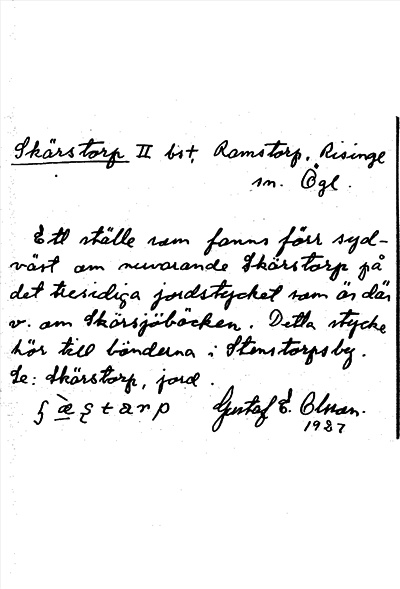 Skärstorp II bst, Ramstorp, Risinge
sn. Ögl.
Ett ställe som fanns förr syd-
väst om nuvarande Skärstorp på
det tresidiga jordstycket som är där
v. om Skärsjöbäcken. Detta stycke
hör till bönderna i Stenstorps by.
Se: Skärstorp, jord.
Gustaf E. Olsson.
1987